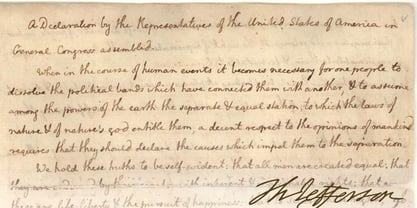 A Declaration by the Representatives of the United States of America in
General Congress assembled.
When in the course of human events it becomes necessary for one people to
dissolve the political bands which have connected them with another, & to assume
among the powers of the earth the separate & equal station to which the laws of
nature & of nature's god entitle them, a decent respect to the opinions of mankind
requires that they should declare the causes which impel them to the separation.
We hold these truths to be self-evident; that all men are created equal; that
they are by with inherent & that
these are life, liberty & the pursuit of happiness;
Th Jefferson